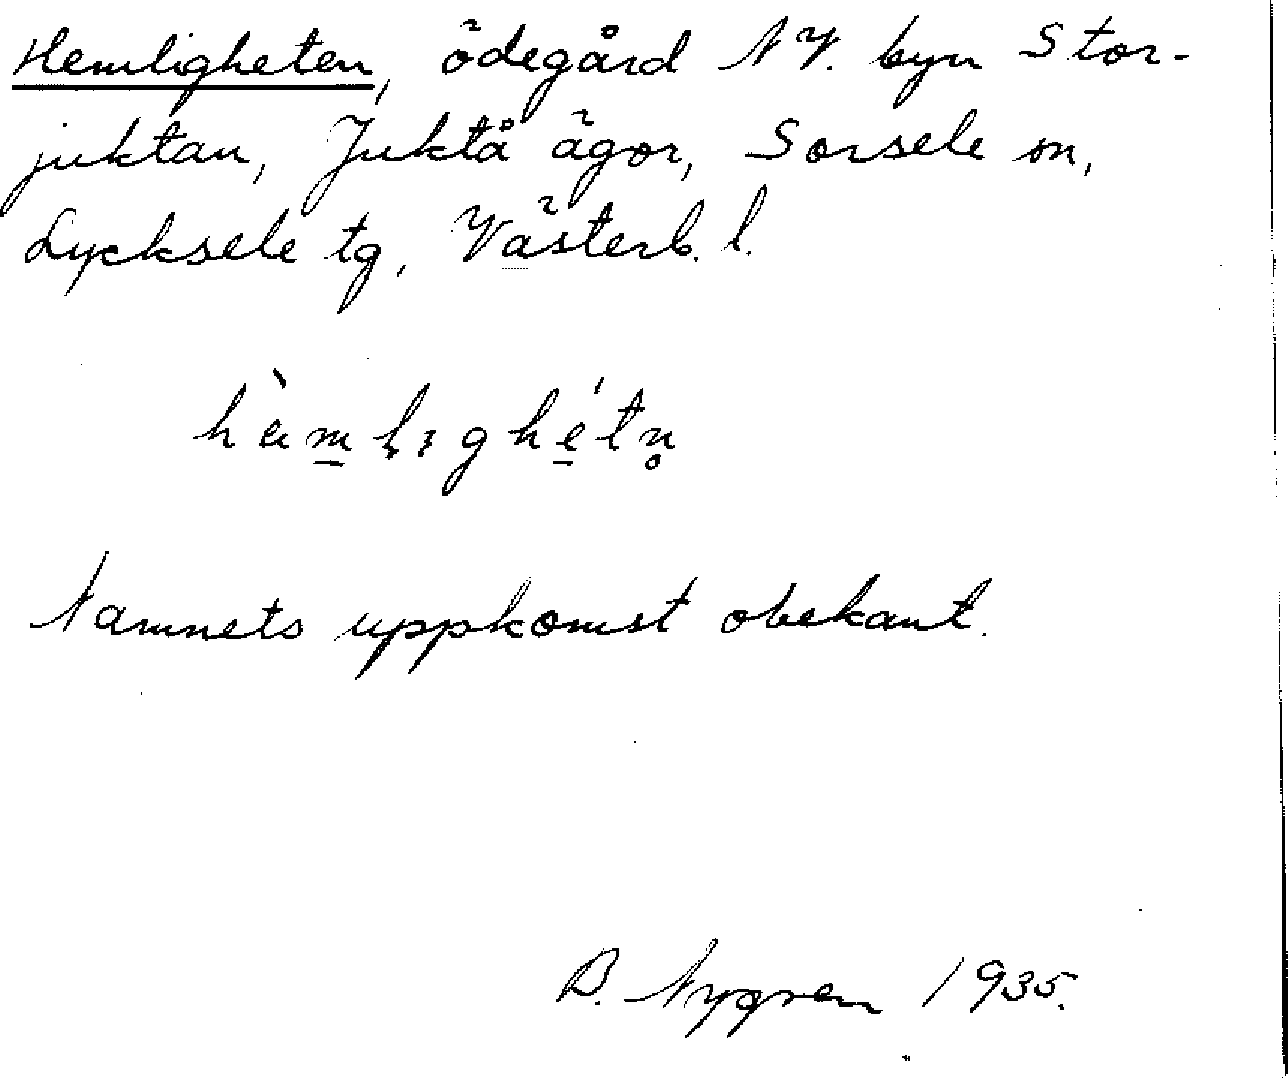 Hemligheten, ödegård NV. byn Stor-
juktan, Juktå ägor, Sorsele sn,
Lycksele tg, Västerb. l.
Namnets uppkomst obekant.
B. Nygren 1935.